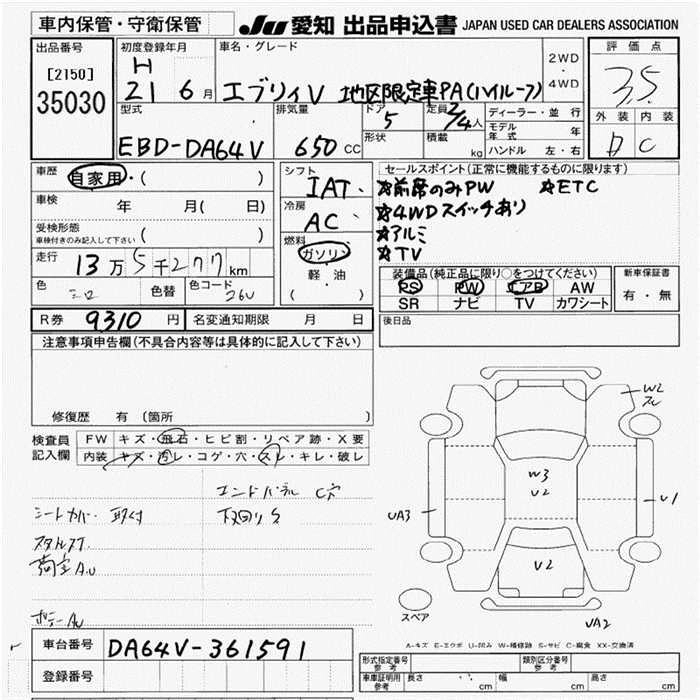 車内保管・守衛保管 JU 愛知 出品申込書 JAPAN USED CAR DEALERS ASSOCIATION
出品番号
[2150]
35030
初度登録年月
H
21 6月
車名・グレード
エブリィV 地区限定車PA(ハイルーフ)
2WD
・
4WD
評価点
3.5
外装 内装
D C
型式
EBD-DA64V
排気量
650 CC
ドア
5
定員
2/4人
形状
積載
kg
ディーラー・並行
モデル年式 年
ハンドル 左・右
車歴
自家用・( )
車検 年 月( 日)
受検形態
車検付きのみ記入して下さい ( )
走行
13万5千277km
色
シロ
色替
色コード
26U
シフト
IAT
冷房
AC
燃料
ガソリン
軽・油
( )
セールスポイント(正常に機能するものに限ります)
☆前席のみPW ☆ETC
☆4WDスイッチあり
☆アルミ
☆TV
装備品(純正品に限り○をつけてください)
PS PW エアB AW
SR ナビ TV カワシート
新車保証書
有・無
R券 9310 円 名変通知期限 月 日
後日品
注意事項申告欄(不具合内容等は具体的に記入して下さい)
修復歴 有 〔箇所 〕
検査員記入欄
FW キズ・飛石・ヒビ割・リペア跡・X要
内装 キズ・汚レ・コゲ・穴・スレ・キレ・破レ
エンドパネル C穴
シートカバー 取付
下回りS
W2
スレ
W3
U2
UA3
U1
U2
UA2
スペア
A-キズ E-エクボ U-凹み W-補修跡 S-サビ C-腐食 XX-交換済
車台番号 DA64V-361591
登録番号
形式指定番号 参考
類別区分番号 参考
車庫証明用 参考 長さ cm 幅 cm 高さ cm